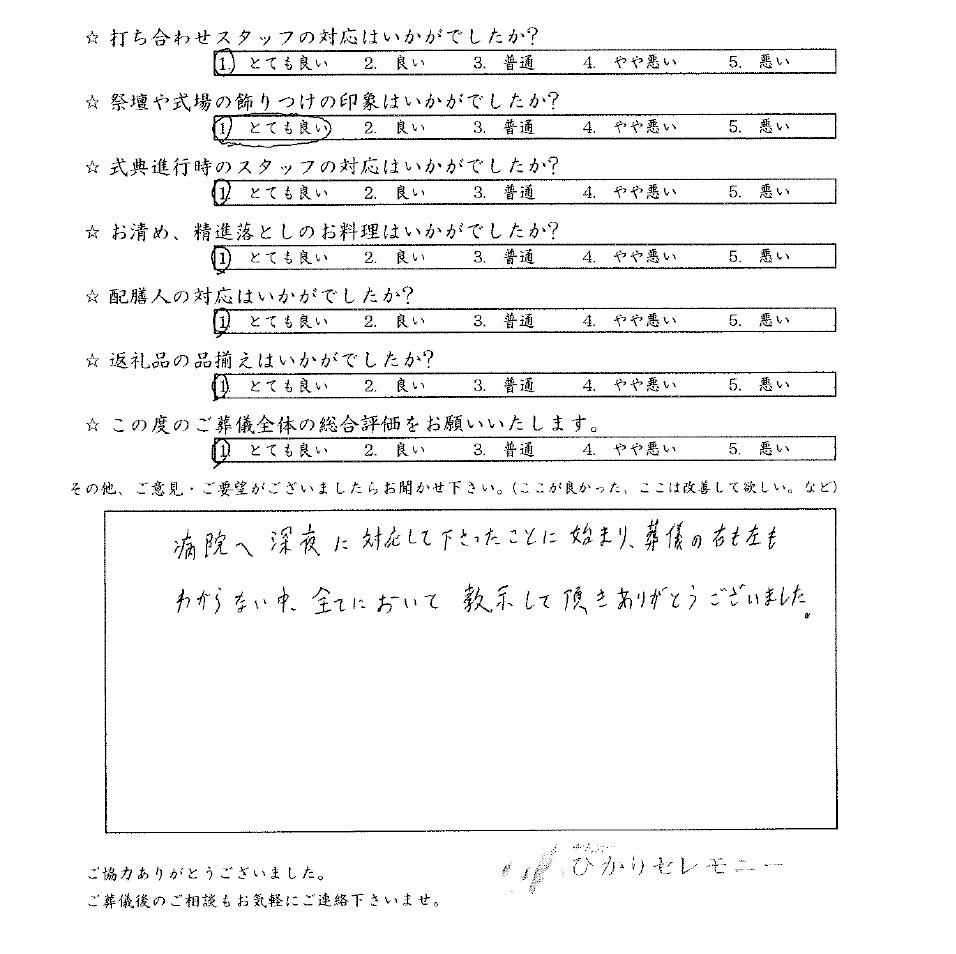 ☆ 打ち合わせスタッフの対応はいかがでしたか?
1. とても良い 2. 良い 3. 普通 4. やや悪い 5. 悪い
☆ 祭壇や式場の飾りつけの印象はいかがでしたか?
1. とても良い 2. 良い 3. 普通 4. やや悪い 5. 悪い
☆ 式典進行時のスタッフの対応はいかがでしたか?
1. とても良い 2. 良い 3. 普通 4. やや悪い 5. 悪い
☆ お清め、精進落としのお料理はいかがでしたか?
1. とても良い 2. 良い 3. 普通 4. やや悪い 5. 悪い
☆ 配膳人の対応はいかがでしたか?
1. とても良い 2. 良い 3. 普通 4. やや悪い 5. 悪い
☆ 返礼品の品揃えはいかがでしたか?
1. とても良い 2. 良い 3. 普通 4. やや悪い 5. 悪い
☆ この度のご葬儀全体の総合評価をお願いいたします。
1. とても良い 2. 良い 3. 普通 4. やや悪い 5. 悪い
その他、ご意見・ご要望がございましたらお聞かせ下さい。(ここが良かった、ここは改善して欲しい。など)
病院へ深夜に対応して下さったことに始まり、葬儀の右も左も
わからない中、全てにおいて教示して頂きありがとうございました。
ご協力ありがとうございました。
ひかりセレモニー
ご葬儀後のご相談もお気軽にご連絡下さいませ。